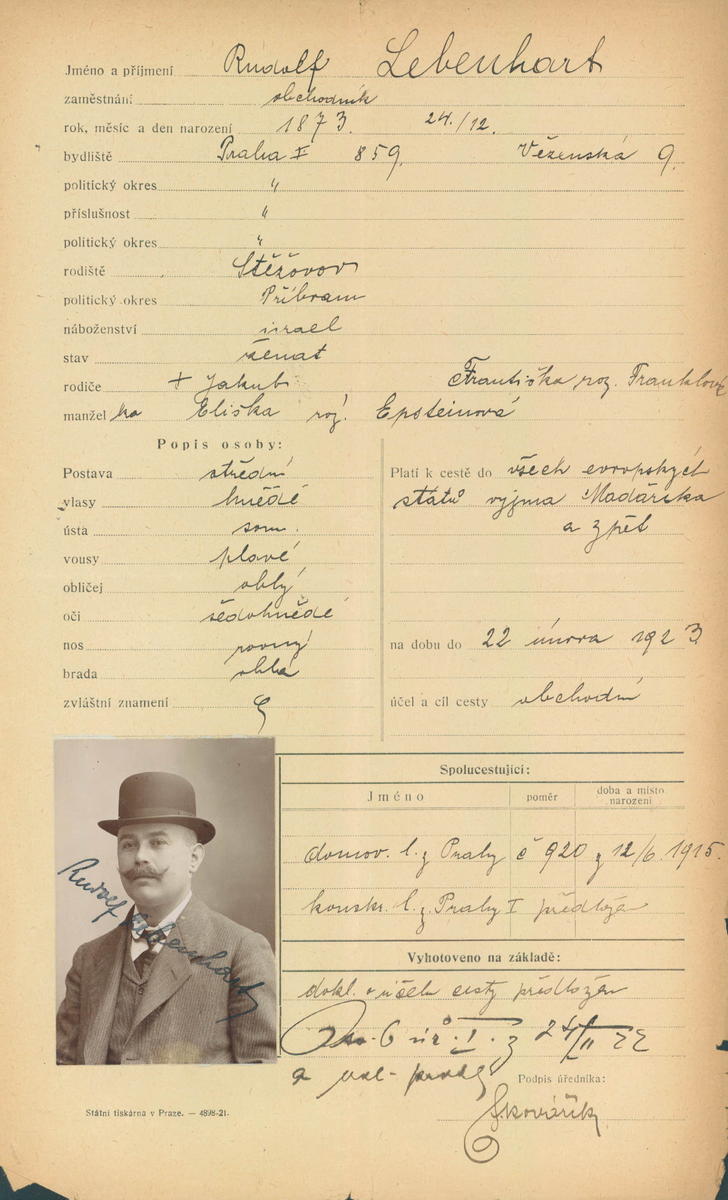 Jméno a příjmení Rudolf Lebenhart
zaměstnání obchodník
rok, měsíc a den narození 1873. 24./12.
bydliště Praha I 859. Vězenská 9.
politický okres "
příslušnost "
politický okres "
rodiště Stěžovov
politický okres Příbram
náboženství israel
stav ženat
rodiče + Jakub Františka roz. Franklová
manžel ka Eliška roz. Epsteinová
Popis osoby:
Postava střední
vlasy hnědé
ústa soum.
vousy plavé
obličej oblý
oči šedohnědé
nos rovný
brada oblá
zvláštní znamení
Platí k cestě do všech evropských
států vyjma Maďarska
a zpět
na dobu do 22 února 1923
účel a cíl cesty obchodní
Spolucestující:
Jméno poměr doba a místo narození
domov. l. z Prahy č 920 z 12/6. 1915.
konskr. l. z Prahy I předložen
Vyhotoveno na základě:
dokl. o účelu cesty předložen
z 24/II 22
a
Podpis úředníka:
Skovářík
Rudolf Lebenhart
Státní tiskárna v Praze. — 4898-21.